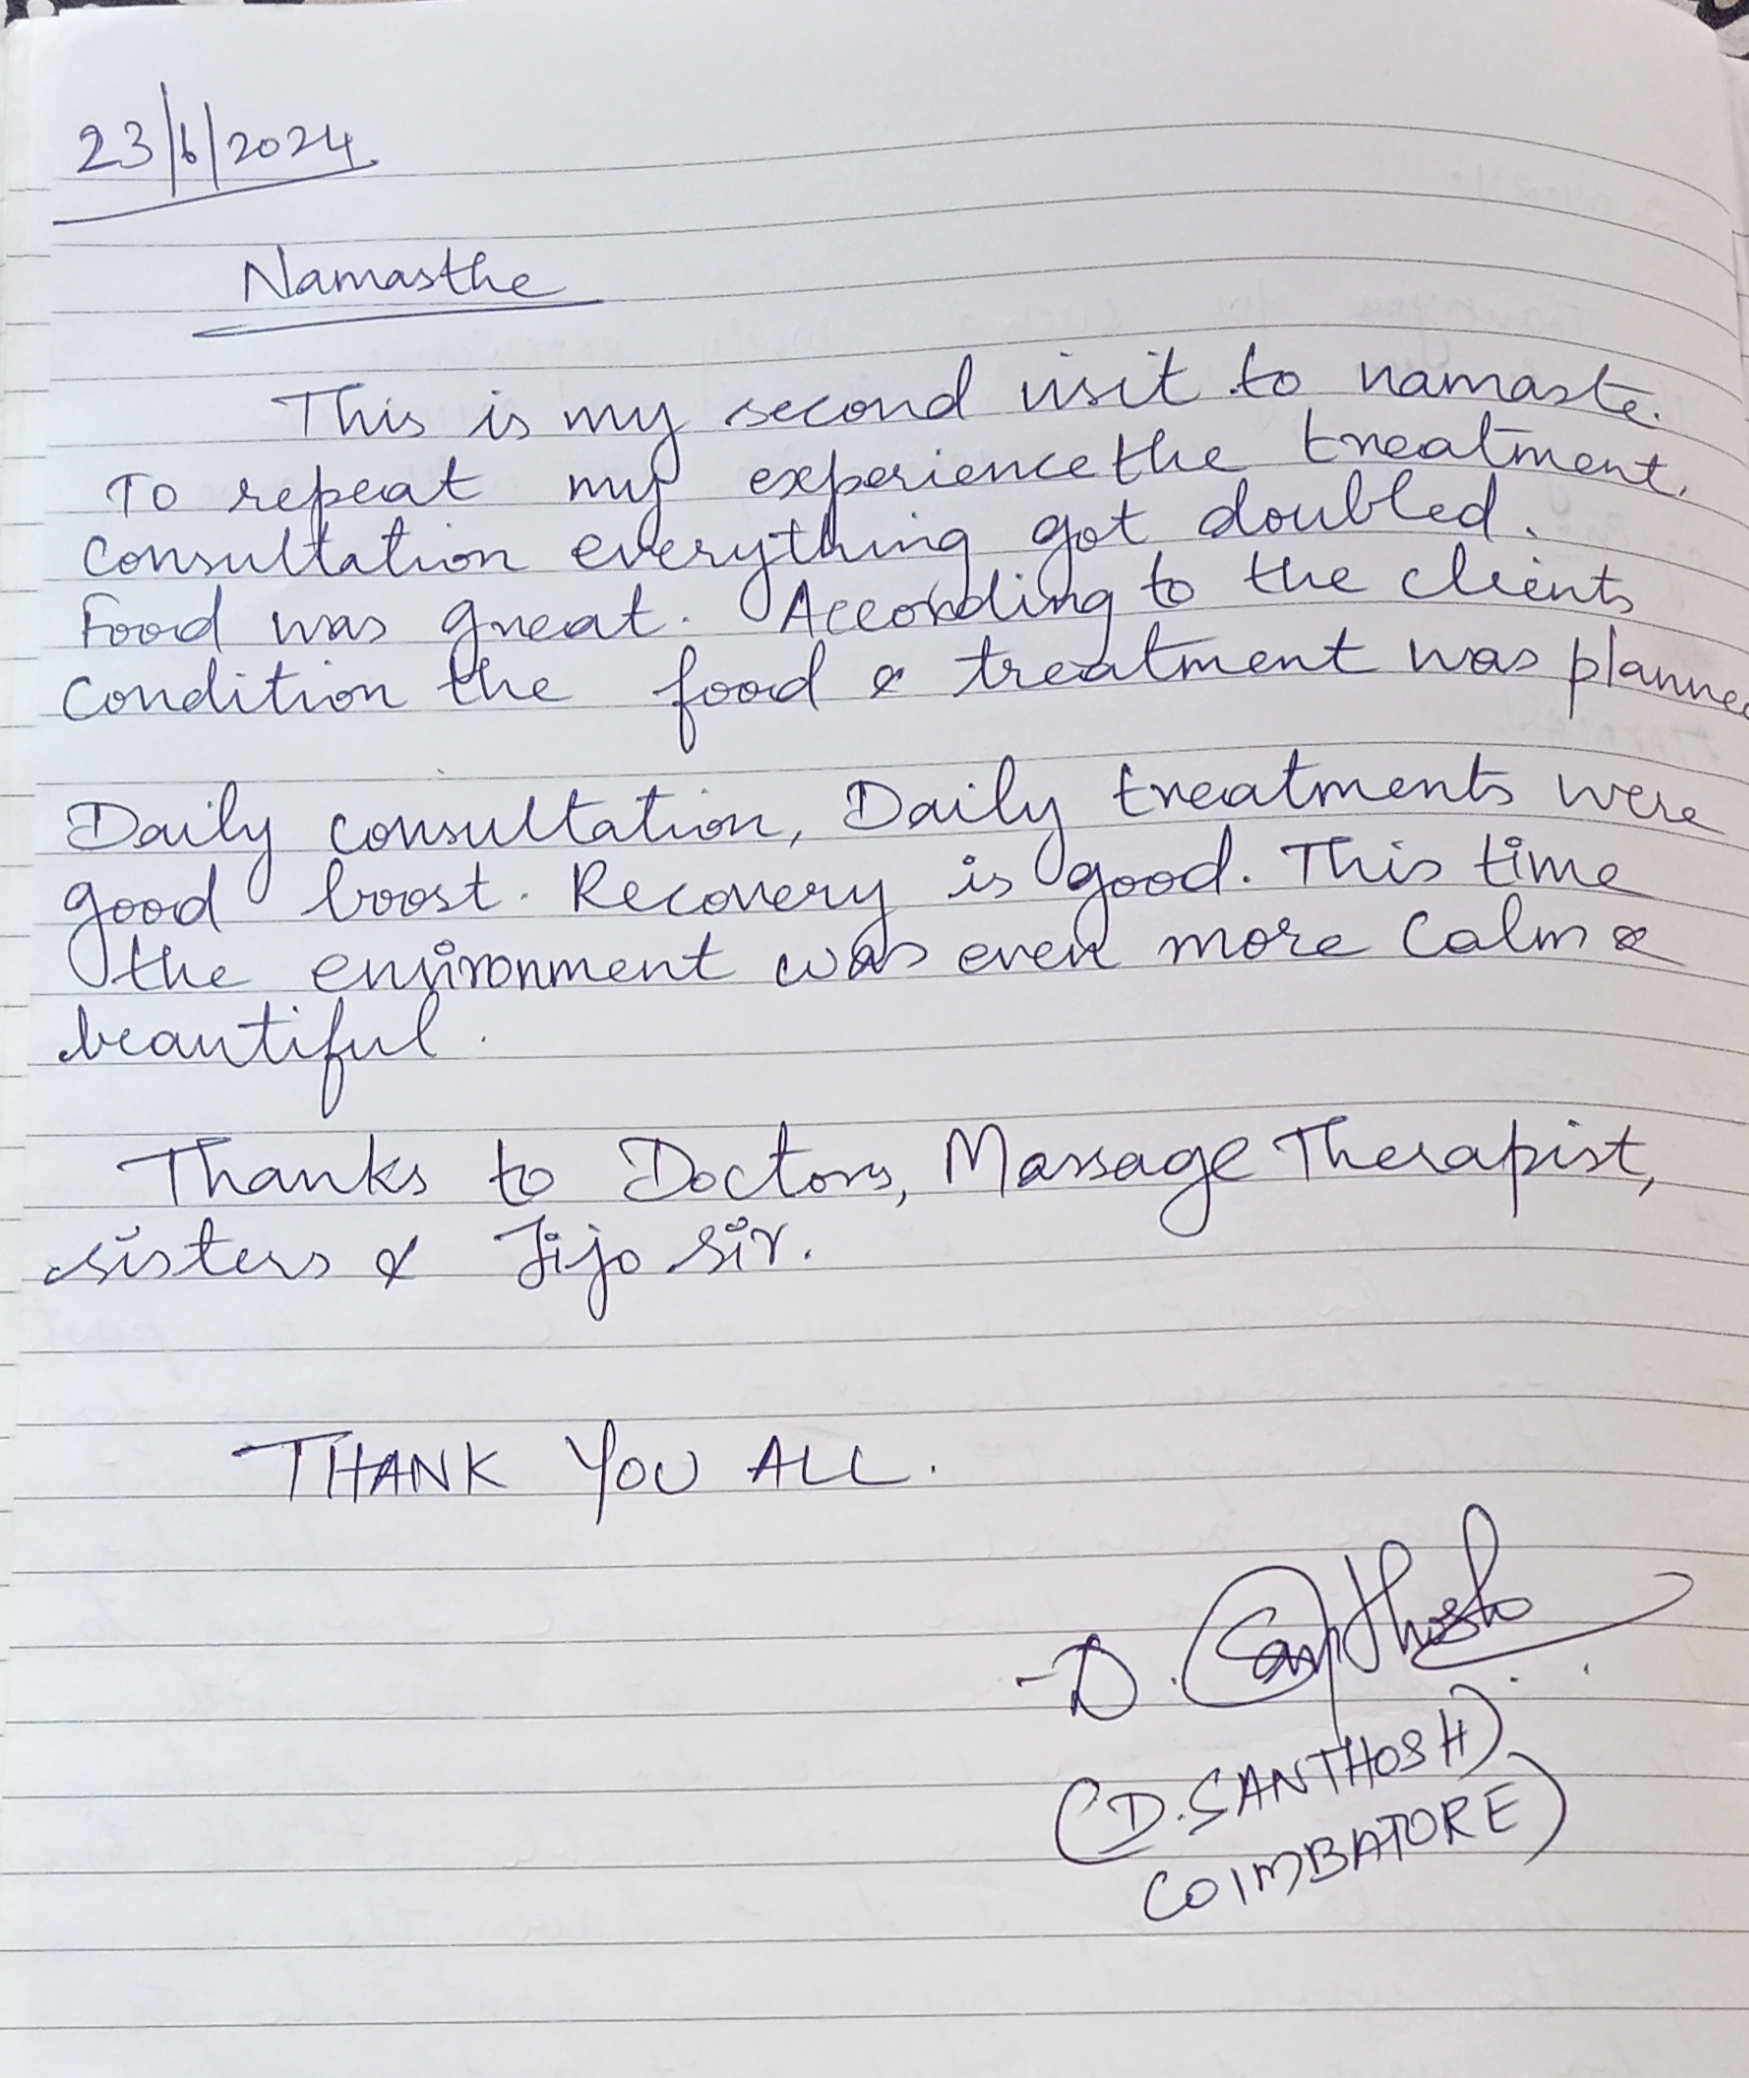 23/6/2024
Namasthe
This is my second visit to namaste.
To repeat my experience the treatment,
Consultation everything got doubled.
Food was great. According to the clients
Condition the food & treatment was planne
Daily consultation, Daily treatments were
good boost. Recovery is good. This time
the environment was even more Calm &
beautiful.
Thanks to Doctors, Massage Therapist,
sisters & Jijo sir.
THANK YOU ALL.
-D. Santhosh
(D. SANTHOSH)
COIMBATORE)